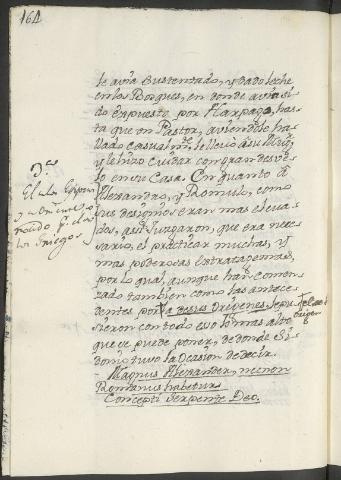 164
le avia Sustentado, y dado leche
en los Bosques, en donde avia si
do expuesto por Harpago, has
ta que un Pastor, aviendole ha
llado casualmte, le llevó a su
y le hizo Cuidar con gran desve
lo en su Casa. En quanto à
Alexandro, y Romulo, como
sus designios eran mas eleva
dos, assi Juzgaron, que era nece
sario, el practicar muchas, y
mas poderosas Estratagemas,
por lo qual, aunque han comen
zado tambien como las antece
dentes por la de sus Origenes, se pu
sieron con todo eso lo mas alto
que se puede poner, de donde Si
donio tuvo la Ocasion de decir.
Magnus Alexander, necnon
Romanus habetur
Concepti Serpente Deo.
3.
por el
los Griegos
origen